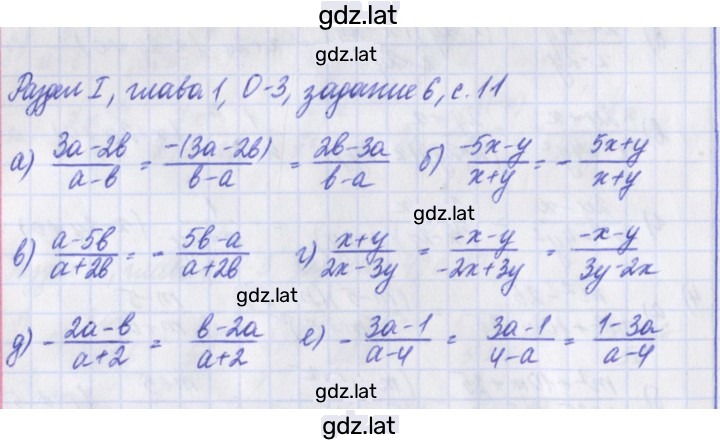 gdz.lat
gdz.lat
Раздел I, глава 1, О-3, задание 6, с. 11
а) (3a-2b)/(a-b) = (-(3a-2b))/(b-a) = (2b-3a)/(b-a) б) (-5x-y)/(x+y) = - (5x+y)/(x+y)
gdz.lat
в) (a-5b)/(a+2b) = - (5b-a)/(a+2b) г) (x+y)/(2x-3y) = (-x-y)/(-2x+3y) = (-x-y)/(3y-2x)
gdz.lat
д) - (2a-b)/(a+2) = (b-2a)/(a+2) е) - (3a-1)/(a-4) = (3a-1)/(4-a) = (1-3a)/(a-4)
gdz.lat
gdz.lat